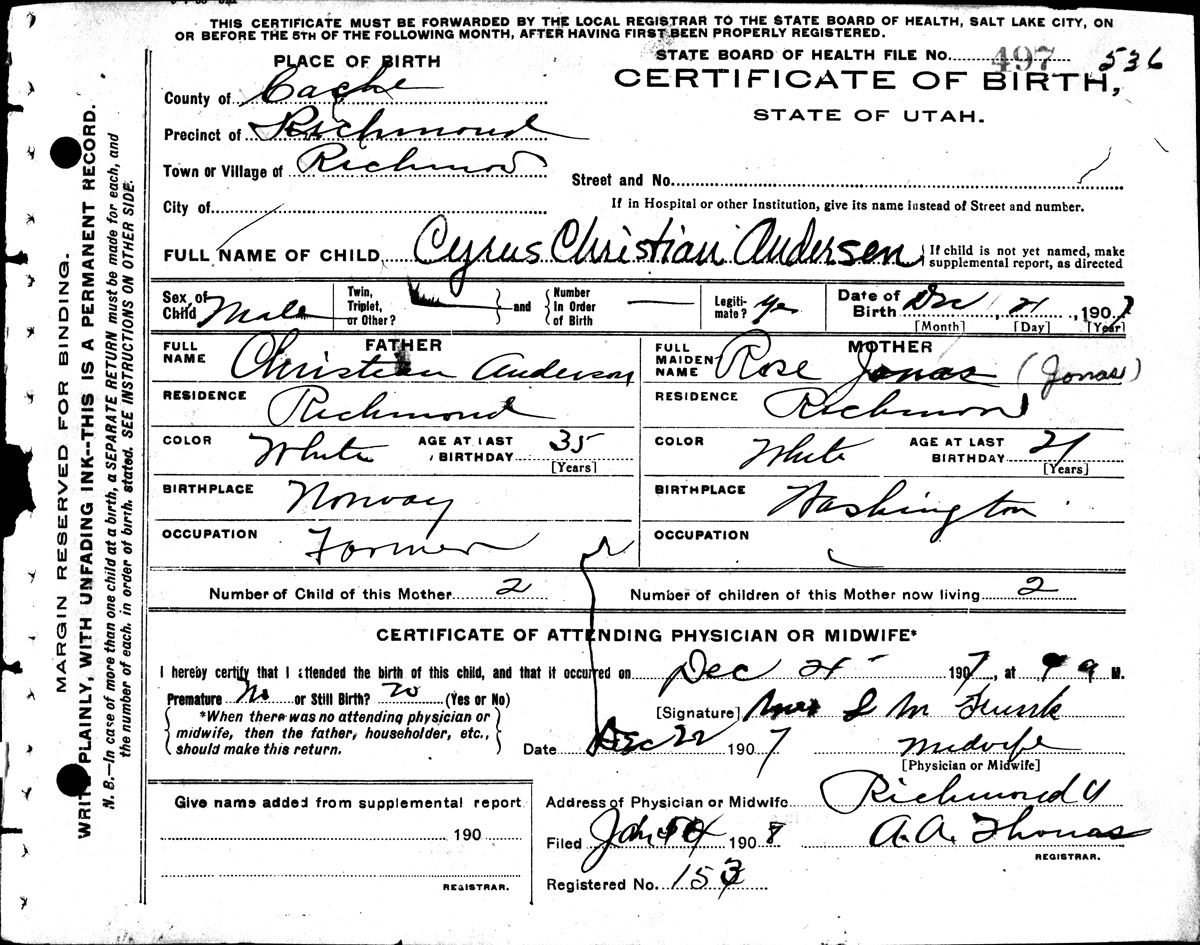 THIS CERTIFICATE MUST BE FORWARDED BY THE LOCAL REGISTRAR TO THE STATE BOARD OF HEALTH, SALT LAKE CITY, ON
OR BEFORE THE 5TH OF THE FOLLOWING MONTH, AFTER HAVING FIRST BEEN PROPERLY REGISTERED.
PLACE OF BIRTH
STATE BOARD OF HEALTH FILE No. 497 536
CERTIFICATE OF BIRTH,
STATE OF UTAH.
County of Cache
Precinct of Richmond
Town or Village of Richmond
Street and No.
City of
If in Hospital or other Institution, give its name instead of Street and number.
FULL NAME OF CHILD Cyrus Christian Andersen
If child is not yet named, make
supplemental report, as directed
Sex of Child Male
Twin, Triplet, or Other? and Number In Order of Birth
Legitimate? Ye
Date of Birth Dec 21, 1907
[Month] [Day] [Year]
FATHER
FULL NAME Christian Anderson
MOTHER
FULL MAIDEN NAME Rose Jonas (Jonas)
RESIDENCE Richmond
RESIDENCE Richmond
COLOR White AGE AT LAST BIRTHDAY 35 [Years]
COLOR White AGE AT LAST BIRTHDAY 21 [Years]
BIRTHPLACE Norway
BIRTHPLACE Washington
OCCUPATION Farmer
OCCUPATION
Number of Child of this Mother 2
Number of children of this Mother now living 2
CERTIFICATE OF ATTENDING PHYSICIAN OR MIDWIFE*
I hereby certify that I attended the birth of this child, and that it occurred on Dec 21 1907, at 9 M.
Premature No or Still Birth? No (Yes or No)
*When there was no attending physician or
midwife, then the father, householder, etc.,
should make this return.
[Signature] Mrs S M Funk
Date Dec 22 1907
Midwife
[Physician or Midwife]
Give name added from supplemental report
190
REGISTRAR.
Address of Physician or Midwife Richmond U
Filed Jan 1908 A. A. Thomas
REGISTRAR.
Registered No. 153
MARGIN RESERVED FOR BINDING.
WRITE PLAINLY, WITH UNFADING INK--THIS IS A PERMANENT RECORD.
N. B.—In case of more than one child at a birth, a SEPARATE RETURN must be made for each, and
the number of each, in order of birth, stated. SEE INSTRUCTIONS ON OTHER SIDE.